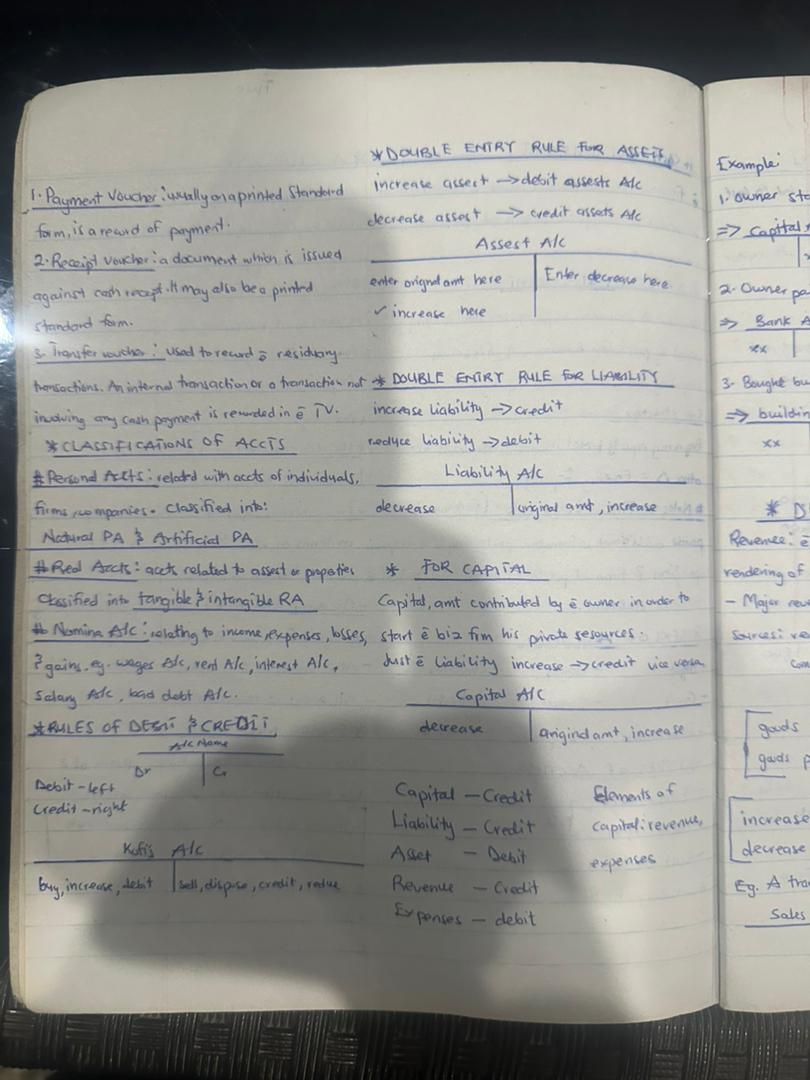 1. Payment Voucher: usually on a printed standard
form, is a record of payment.
2. Receipt voucher: a document which is issued
against cash receipt. It may also be a printed
standard form.
3. Transfer voucher: used to record ē residuary
transactions. An internal transaction or a transaction not
involving any cash payment is recorded in ē TV.
*CLASSIFICATIONS OF ACCTS
# Personal Accts: related with accts of individuals,
firms, companies. Classified into:
Natural PA & Artificial PA
# Real Accts: accts related to assest or propeties
Classified into tangible & intangible RA
# Nomina A/c: relating to income, expenses, losses,
& gains. eg. wages A/c, rent A/c, interest A/c,
Salary A/c, bad debt A/c.
*RULES OF DEBIT & CREDIT
A/c Name
Dr Cr
Debit - left
Credit - right
Kofi's A/c
buy, increase, debit sell, dispose, credit, redue
*DOUBLE ENTRY RULE FOR ASSETS
increase assest → debit assests A/c
decrease assest → credit assets A/c
Assest A/c
enter original amt here Enter decrease here
✓ increase here
* DOUBLE ENTRY RULE FOR LIABILITY
increase liability → credit
reduce liability → debit
Liability A/c
decrease original amt, increase
* FOR CAPITAL
Capital, amt contributed by ē owner in order to
start ē biz fim his private resources.
Just ē liability increase → credit vice versa
Capital A/c
decrease original amt, increase
Capital - Credit
Liability - Credit
Asset - Debit
Revenue - Credit
Expenses - debit
Elements of
capital: revenue,
expenses
Example:
1. owner sta
=> Capital A
2. Owner pa
=> Bank A
xx
3. Bought bu
=> buildin
xx
* D
Revenue: ē
rendering of
- Major reve
Sources: re
com
goods
goods p
increase
decrease
Eg. A tra
Sales